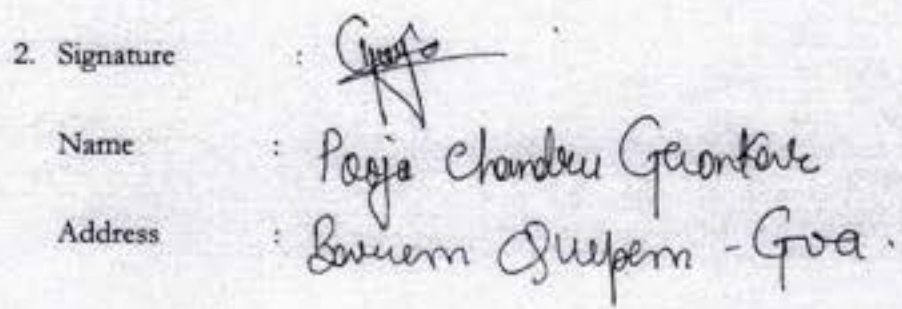 2. Signature :
Name : Pooja Chandru Gaonkar
Address : Quepem - Goa.